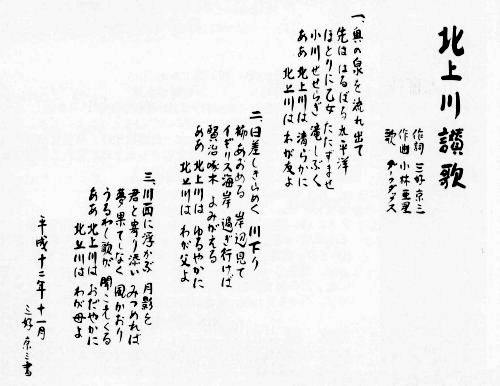 北上川讃歌
作詞 三好京三
作曲 小林亜星
歌 ダークダックス
一、奥の泉を流れ出て
先は はるばる 太平洋
ほとりに乙女 たたずませ
小川せせらぎ 滝しぶく
ああ 北上川は 清らかに
北上川は わが友よ
二、日差しきらめく 川下り
柳あおめる 岸辺見て
イギリス海岸 過ぎ行けば
賢治 啄木 よみがえる
ああ 北上川は ゆるやかに
北上川は わが父よ
三、川面に浮かぶ 月影を
君と寄り添い みつめれば
夢果てしなく 風かおり
うるわし歌が 聞こえくる
ああ 北上川は おだやかに
北上川は わが母よ
平成十二年十一月
三好京三書